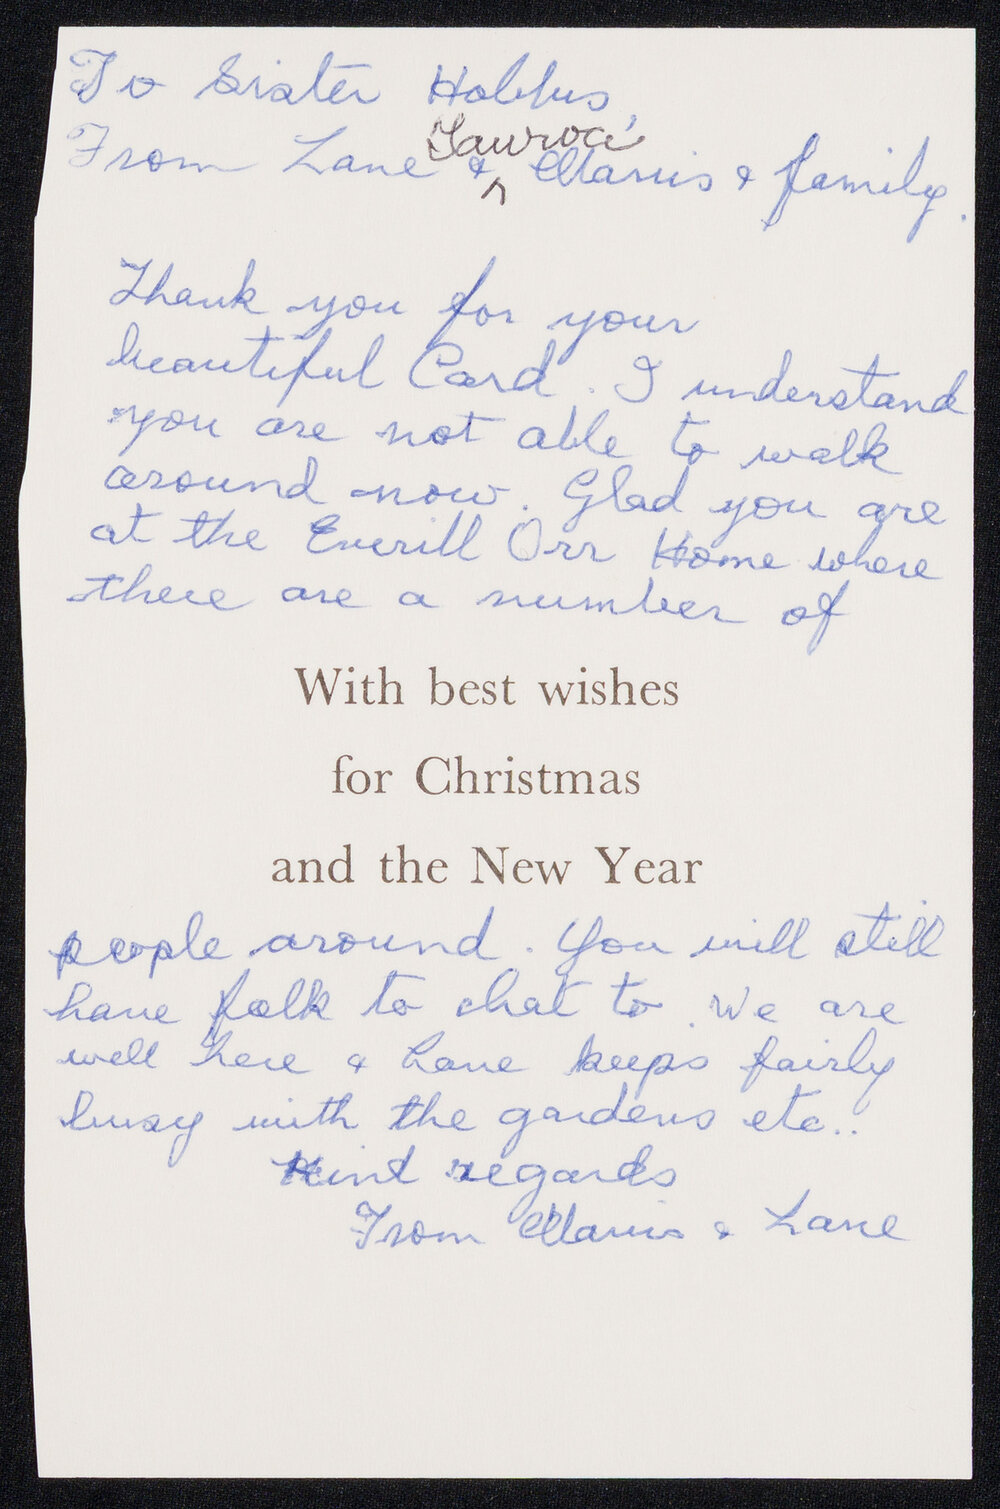 To Sister Hobbs,
From Lane Tauroa & Mavis & family.
Thank you for your
beautiful Card. I understand
you are not able to walk
around now. Glad you are
at the Everill Orr Home where
there are a number of
With best wishes
for Christmas
and the New Year
people around. You will still
have folk to chat to. We are
well here & Lane keeps fairly
busy with the gardens etc..
Kind regards
From Mavis & Lane